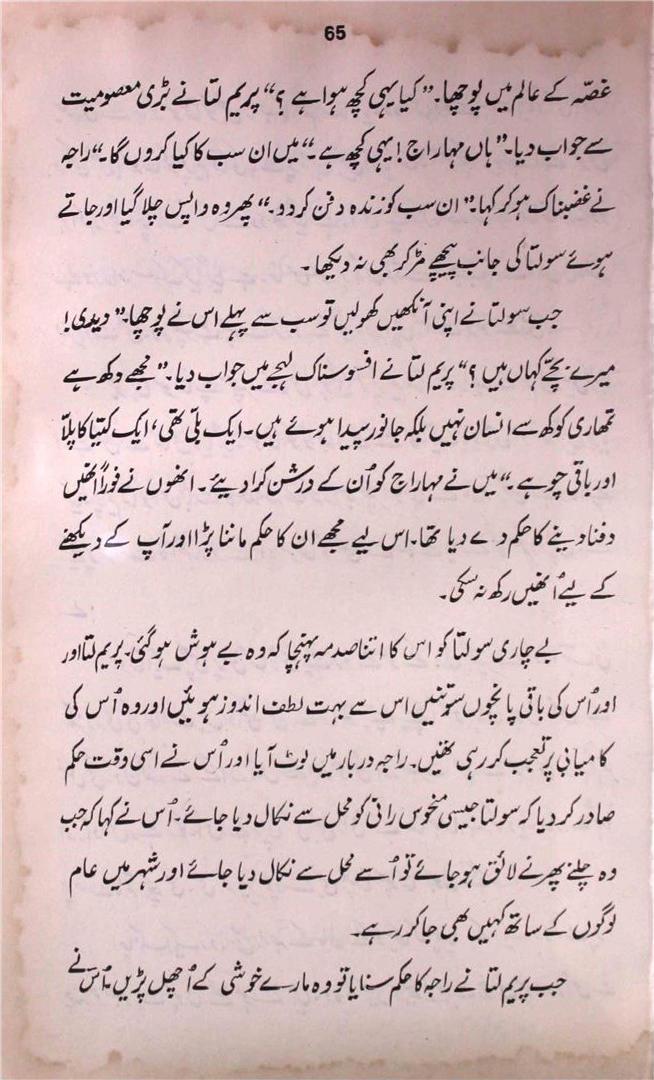 65
غصّہ کے عالم میں پوچھا۔” کیا یہی کچھ ہوا ہے ؟“ پریم لتا نے بڑی معصومیت
سے جواب دیا۔” ہاں مہاراج ! یہی کچھ ہے ۔“ میں ان سب کا کیا کروں گا۔“ راجہ
نے غضبناک ہو کر کہا۔” ان سب کو زندہ دفن کر دو ۔“ پھر وہ واپس چلا گیا اور جاتے
ہوئے سولتا کی جانب پیچھے مڑ کر بھی نہ دیکھا ۔
جب سولتا نے اپنی آنکھیں کھولیں تو سب سے پہلے اس نے پوچھا۔” دیدی !
میرے بچّے کہاں ہیں ؟“ پریم لتا نے افسوسناک لہجے میں جواب دیا۔” مجھے دکھ ہے
تمھاری کوکھ سے انسان نہیں بلکہ جانور پیدا ہوئے ہیں۔ ایک بلّی تھی ، ایک کتیا کا پلّا
اور باقی چوہے ۔“ میں نے مہاراج کو اُن کے درشن کرا دیئے ۔ انھوں نے فوراً انھیں
دفنا دینے کا حکم دے دیا تھا۔ اس لیے مجھے ان کا حکم ماننا پڑا اور آپ کے دیکھنے
کے لیے اُنھیں رکھ نہ سکی۔
بے چاری سولتا کو اس کا اتنا صدمہ پہنچا کہ وہ بے ہوش ہو گئی۔ پریم لتا اور
اور اُس کی باقی پانچوں سوتنیں اس سے بہت لطف اندوز ہوئیں اور وہ اُس کی
کامیابی پر تعجب کر رہی تھیں۔ راجہ دربار میں لوٹ آیا اور اُس نے اسی وقت حکم
صادر کر دیا کہ سولتا جیسی منحوس رانی کو محل سے نکال دیا جائے۔ اُس نے کہا کہ جب
وہ چلنے پھرنے لائق ہو جائے تو اُسے محل سے نکال دیا جائے اور شہر میں عام
لوگوں کے ساتھ کہیں بھی جا کر رہے۔
جب پریم لتا نے راجہ کا حکم سنایا تو وہ مارے خوشی کے اُچھل پڑیں۔ اُس نے